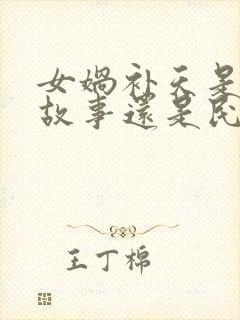 女娲补天是
故事还是民
王丁棉